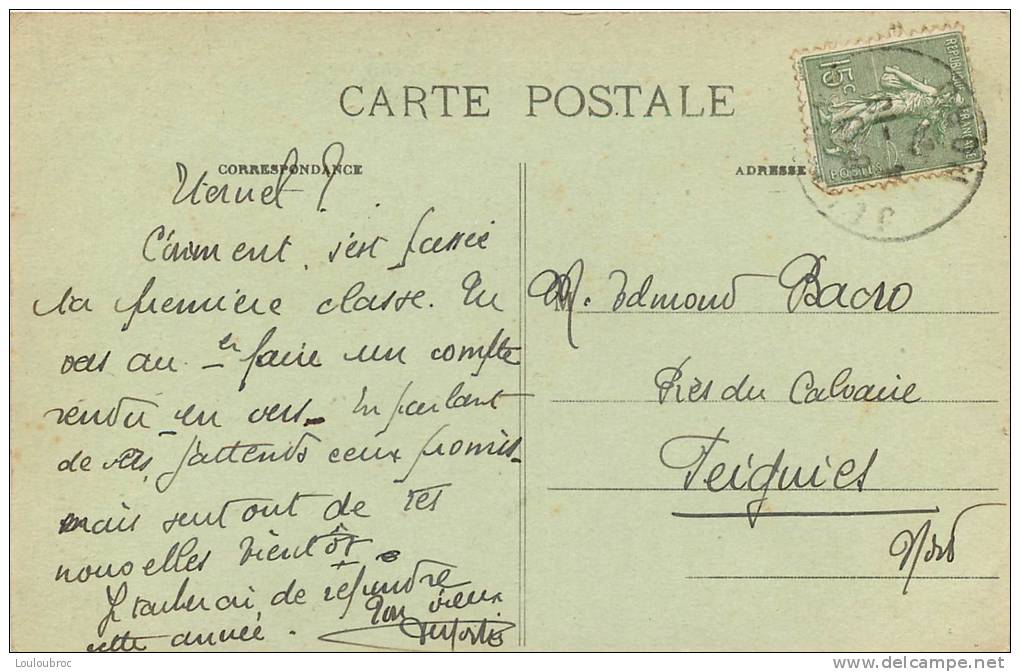 CARTE POSTALE
RÉPUBLIQUE FRANÇAISE
15c
POSTES
CORRESPONDANCE
ADRESSE
Comment s'est passée
ta première classe. Tu
vas au en faire un compte
rendu en vers. En parlant
de vers, j'attends ceux promis
mais surtout de tes
nouvelles bientôt.
de répondre
cette année. Ton vieux
M. Edmond Bacro
Près du Calvaire
Feignies
Nord
Louloubroc
http://www.delcampe.net